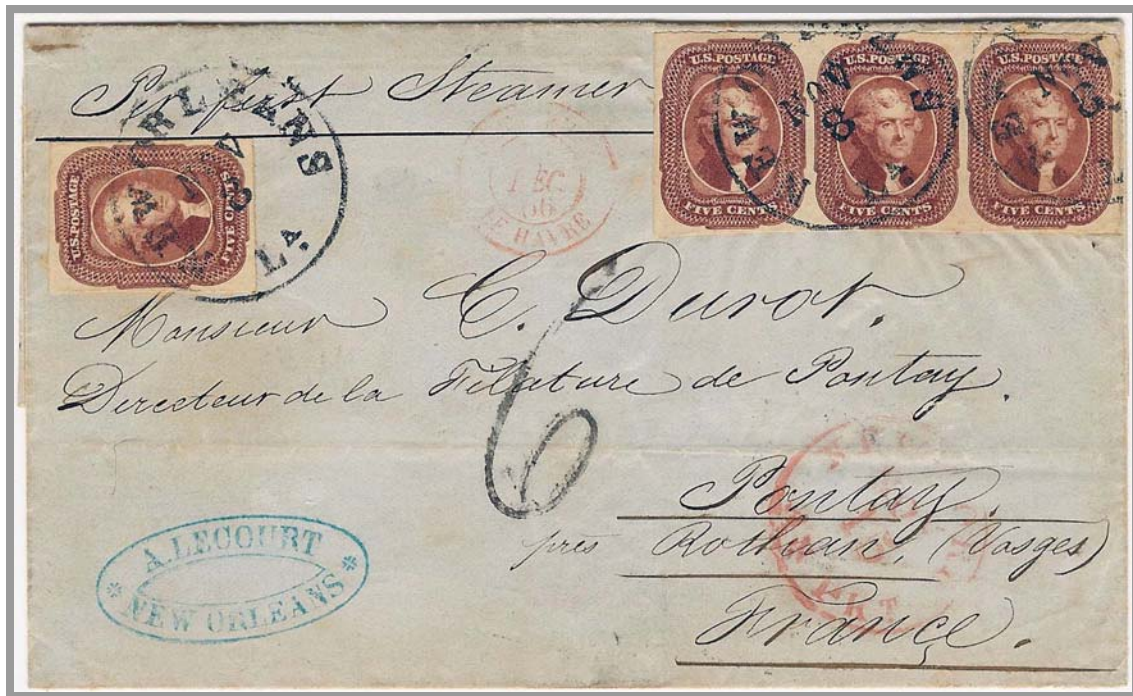 Per first Steamer
U.S. POSTAGE
FIVE CENTS
U.S. POSTAGE
FIVE CENTS
U.S. POSTAGE
FIVE CENTS
U.S. POSTAGE
FIVE CENTS
NEW ORLEANS
NOV
8
La.
LE HAVRE
Monsieur C. Durot.
Directeur de la Filature de Pontay.
6
Pontay.
près Rothean, (Vosges)
France.
A. LECOURT
NEW ORLEANS